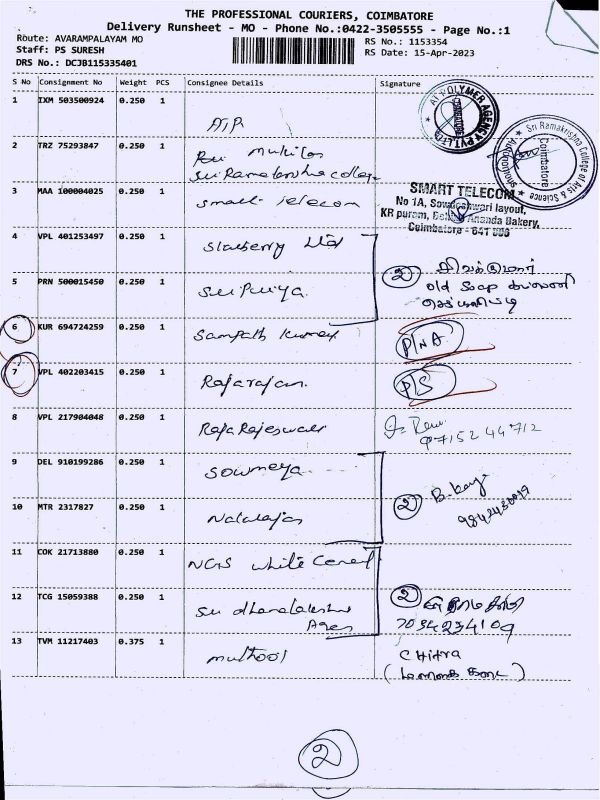 THE PROFESSIONAL COURIERS, COIMBATORE
Delivery Runsheet - MO - Phone No.:0422-3505555 - Page No.:1
Route: AVARAMPALAYAM MO
Staff: PS SURESH
DRS No.: DCJB115335401
RS No.: 1153354
RS Date: 15-Apr-2023
S No Consignment No Weight PCS Consignee Details Signature
1 IXM 503500924 0.250 1
AI POLYMER AGENCY PVT LTD
COIMBATORE
2 TRZ 75293847 0.250 1
Sri Ramakrishna College of Arts & Science
Coimbatore
3 MAA 100004025 0.250 1 Smart Telecom
SMART TELECOM
No 1A, Sowdeshwari layout,
KR puram, Ananda Bakery,
Coimbatore - 641 006
4 VPL 401253497 0.250 1
5 PRN 500015450 0.250 1 Suripriya
2
சிவக்குமார்
old Soap
6 KUR 694724259 0.250 1 Sampath Kumar P/NA
7 VPL 402203415 0.250 1 Rajarajan P/S
8 VPL 217904048 0.250 1 RajaRajeswari
97152 44712
9 DEL 910199286 0.250 1 Sowmeya
10 MTR 2317827 0.250 1 Natarajan
2
11 COK 21713880 0.250 1 NCS White
12 TCG 15059388 0.250 1 Sri dhanalakshmi
2
13 TVM 11217403 0.375 1 muthoot
CHitra
2